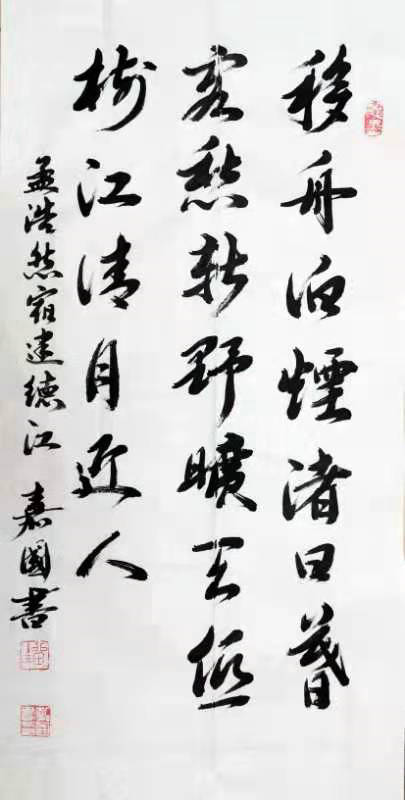 移舟泊煙渚日暮
客愁新野曠天低
樹江清月近人
孟浩然宿建德江 嘉國書